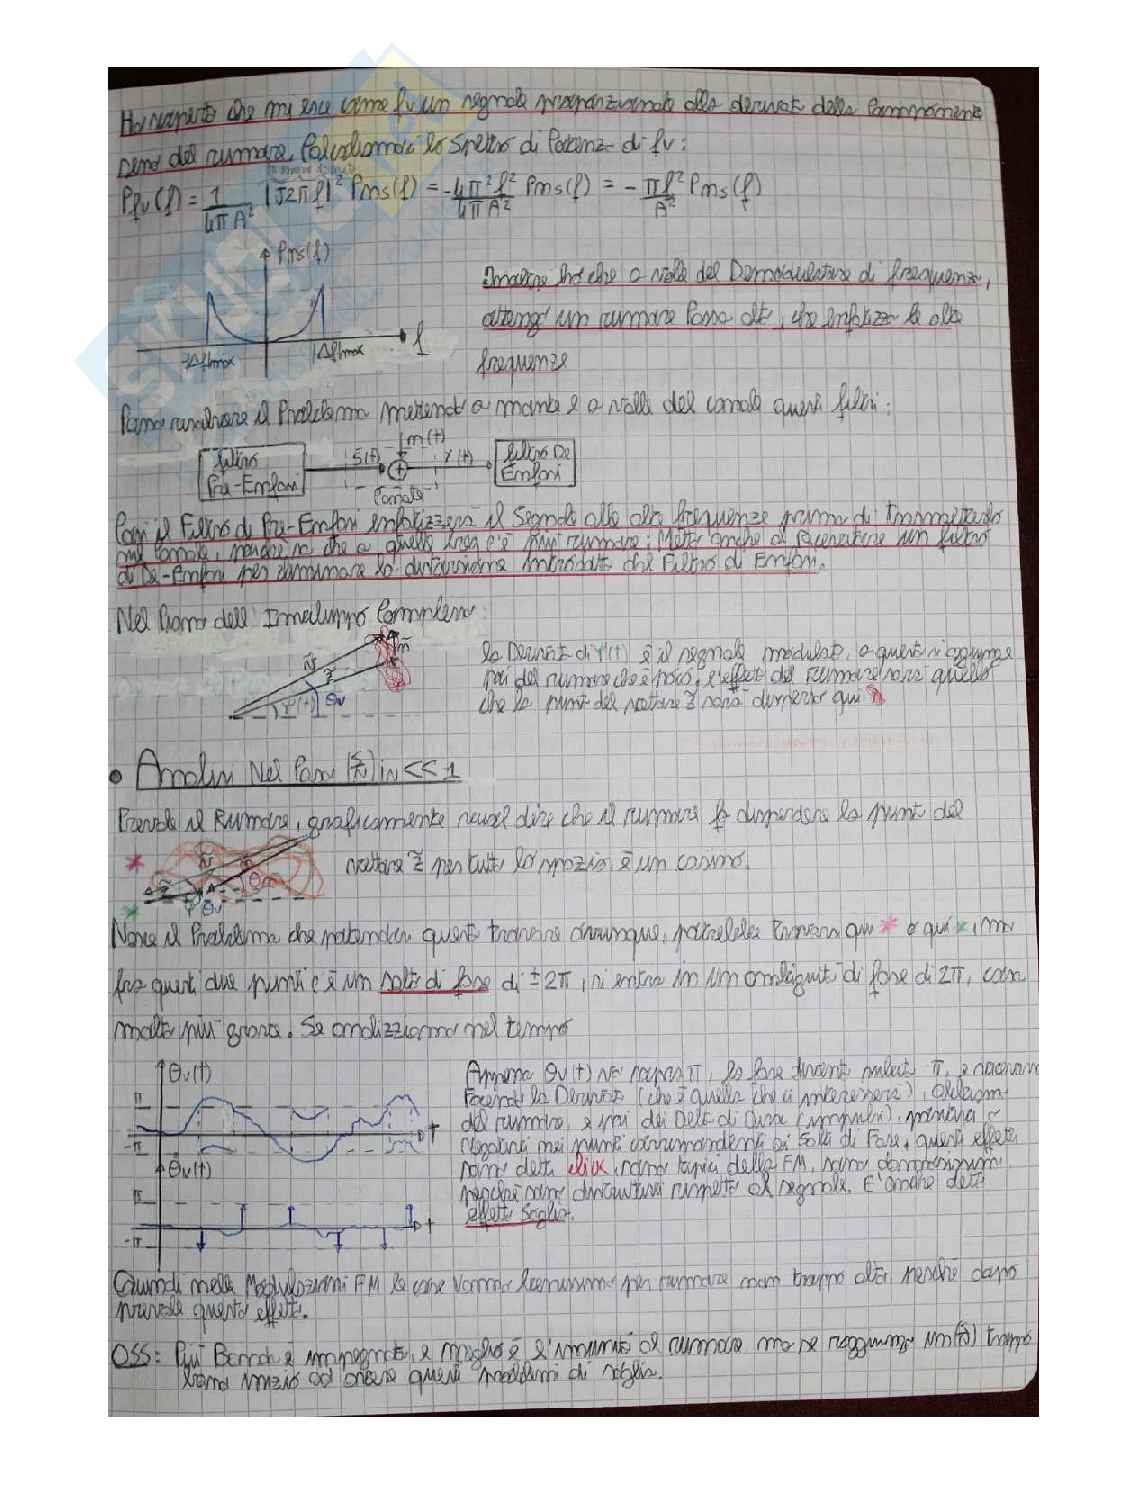 Ho scoperto che mi esce come fv un segnale proporzionale alla derivata della componente
seno del rumore. Calcoliamoci lo Spettro di Potenza di fv:
Pfv(f) = 1/4πA² |J2πf|² Pns(f) = -4π²f²/4πA² Pns(f) = - πf²/A² Pns(f)
Pns(f)
-Δfmax Δfmax f
ho che a valle del Demodulatore di frequenza,
ottengo un rumore Passa alto, che enfatizza le alte
frequenze
Posso risolvere il Problema mettendo a monte e a valle del canale questi filtri:
n(t)
Filtro Pre-Enfasi S(t) + r(t) Filtro De Enfasi
Canale
Così il Filtro di Pre-Enfasi enfatizzerà il Segnale alle alte frequenze prima di trasmetterlo
sul canale, perché so che a quella area c'è più rumore; Metto anche al Ricevitore un filtro
di De-Enfasi per eliminare la distorsione introdotta dal Filtro di Enfasi.
Nel Piano dell'Inviluppo Complesso
la Derivata di φ(t) è il segnale modulato, a questo si aggiunge
poi del rumore che è poco, l'effetto del rumore sarà quello
che la punta del vettore z̃ sarà dimezzo qui
• Analisi Nel Caso (S/N)in << 1
Prevale il Rumore, graficamente vuol dire che il rumore fa disperdere la punta del
vettore z̃ per tutto lo spazio, è un casino.
Nasce il Problema che potendosi questo trovare ovunque, potrebbe trovarsi qui * o qui *, ma
fra questi due punti c'è un salto di fase di ±2π, si entra in un ambiguità di fase di 2π, cosa
molto più grave. Se analizziamo nel tempo
θv(t)
π
-π
t
θ̇v(t)
π
-π
t
Appena θv(t) va sopra π, la fase diventa π, e
Facendo la Derivata (che è quella che ci interessera),
del rumore, e poi dei Delta di Dirac (impulsi),
nei punti corrispondenti ai Salti di Fase, questi effetti
sono detti click, sono tipici della FM, sono
perché sono disturbi rispetto al segnale. E' anche detto
effetto Soglia.
Quindi nelle Modulazioni FM le cose vanno benissimo per rumore non troppo alto, perché dopo
prevale questo effetto.
OSS: Più Banda è impegnata, e meglio è l'immunità al rumore ma se raggiungo un (S/N) troppo
basso inizio ad avere questi problemi di soglia.